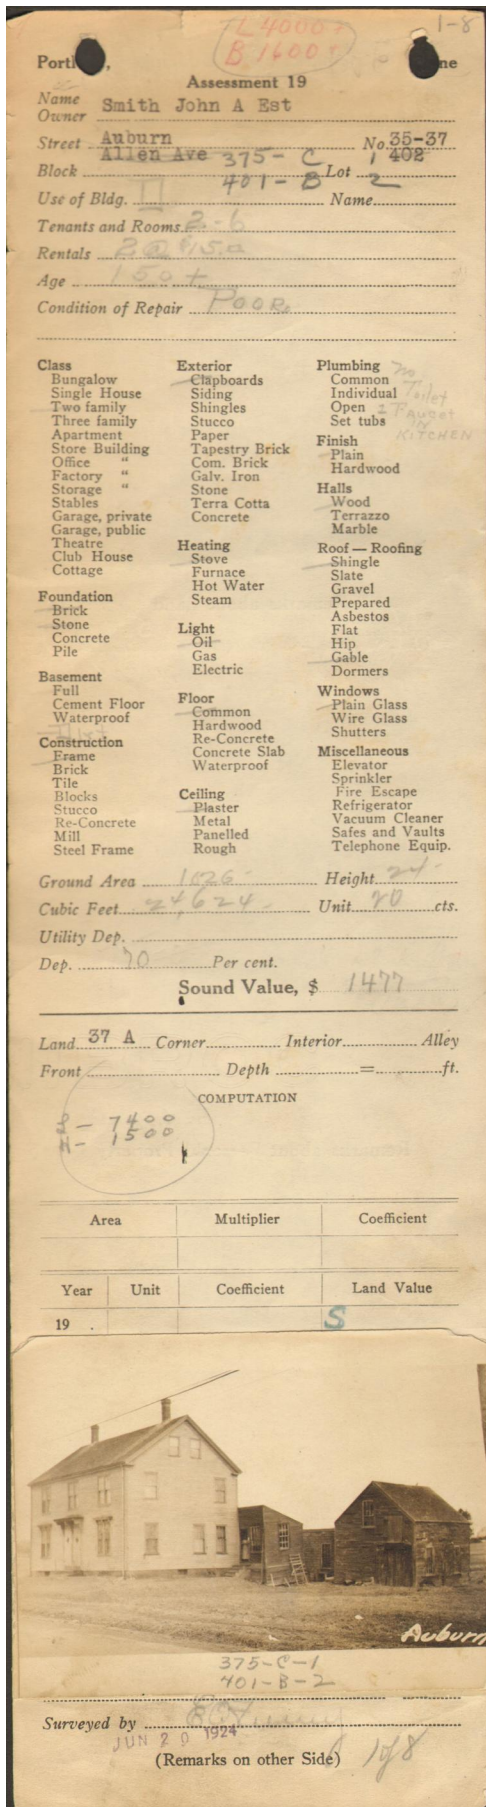 L 4000 +
B 1600 +
1-8
Portl , ne
Assessment 19
Name
Owner Smith John A Est
Street Auburn No. 35-37
Allen Ave 402
375- C 1
Block Lot
401- B 2
Use of Bldg. II Name
Tenants and Rooms 2-6
Rentals 2 @ $15.00
Age 150+
Condition of Repair POOR.
Class
Bungalow
Single House
Two family
Three family
Apartment
Store Building
Office "
Factory "
Storage "
Stables
Garage, private
Garage, public
Theatre
Club House
Cottage
Foundation
Brick
Stone
Concrete
Pile
Basement
Full
Cement Floor
Waterproof
Construction
Frame
Brick
Tile
Blocks
Stucco
Re-Concrete
Mill
Steel Frame
Exterior
Clapboards
Siding
Shingles
Stucco
Paper
Tapestry Brick
Com. Brick
Galv. Iron
Stone
Terra Cotta
Concrete
Heating
Stove
Furnace
Hot Water
Steam
Light
Oil
Gas
Electric
Floor
Common
Hardwood
Re-Concrete
Concrete Slab
Waterproof
Ceiling
Plaster
Metal
Panelled
Rough
Plumbing no
Common Toilet
Individual
Open 2 Faucet
Set tubs IN
KITCHEN
Finish
Plain
Hardwood
Halls
Wood
Terrazzo
Marble
Roof — Roofing
Shingle
Slate
Gravel
Prepared
Asbestos
Flat
Hip
Gable
Dormers
Windows
Plain Glass
Wire Glass
Shutters
Miscellaneous
Elevator
Sprinkler
Fire Escape
Refrigerator
Vacuum Cleaner
Safes and Vaults
Telephone Equip.
Ground Area 1026- Height 24-
Cubic Feet 24,624- Unit 20 cts.
Utility Dep.
Dep. 70 Per cent.
Sound Value, $ 1477
Land 37 A Corner Interior Alley
Front Depth = ft.
COMPUTATION
L - 7400
H - 1500
Area Multiplier Coefficient
Year Unit Coefficient Land Value
19 . S
Auburn
375-C-1
401-B-2
Surveyed by
JUN 20 1924
(Remarks on other Side) 1 of 8